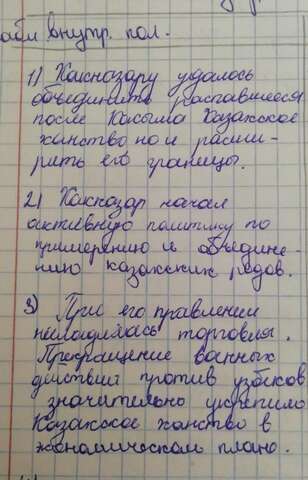 абл внутр. пол.
1) Хакназару удалось
объединить распавшееся
после Касыма Казахское
ханство но и расши-
рить его границы.
2) Хакназар начал
активную политику по
примерению и объедине-
нию казахских родов.
3) При его правлении
наладилась торговля.
Прекращение военных
действий против узбеков
значительно укрепило
Казахское ханство в
экономическом плане.